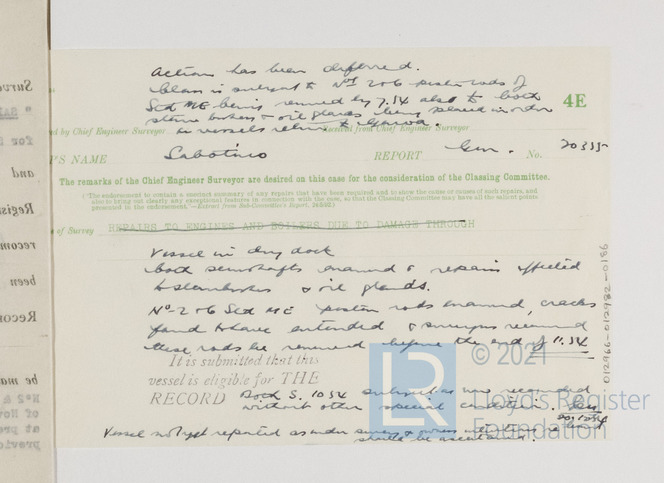 Action has been deferred.
Class is subject to Nos 2 & 6 piston rods of
Stbd ME being renewed by 7.34 also to both
stern bushes & oil glands being placed in order
on vessels return to Genoa.
4E
ed by Chief Engineer Surveyor Received from Chief Engineer Surveyor
P'S NAME Sabotino REPORT Gen. No. 20335
The remarks of the Chief Engineer Surveyor are desired on this case for the consideration of the Classing Committee.
(The endorsement to contain a succinct summary of any repairs that have been required and to show the cause or causes of such repairs, and
also to bring out clearly any exceptional features in connection with the case, so that the Classing Committee may have all the salient points
presented in the endorsement."—Extract from Sub-Committee's Report,
of Survey REPAIRS TO ENGINES AND BOILERS DUE TO DAMAGE THROUGH
Vessel in dry dock
both screwshafts examined & repairs effected
to stern bushes & oil glands.
Nos 2 & 6 Stbd ME piston rods examined, cracks
found to have extended & surveyors recommend
these rods be renewed before the end of 11.34
It is submitted that this
vessel is eligible for THE
RECORD Dock S. 10 34 subject as now recommended
without other special condition.
Vessel not yet reported as under survey & owners intentions re
should be ascertained.
© 2021
LR
Lloyd's Register
Foundation
012966-012982-0186
Surve
for
and
Regis
recom
been
Recor
be ma
Nº2 &
of Nov
at pre
previo